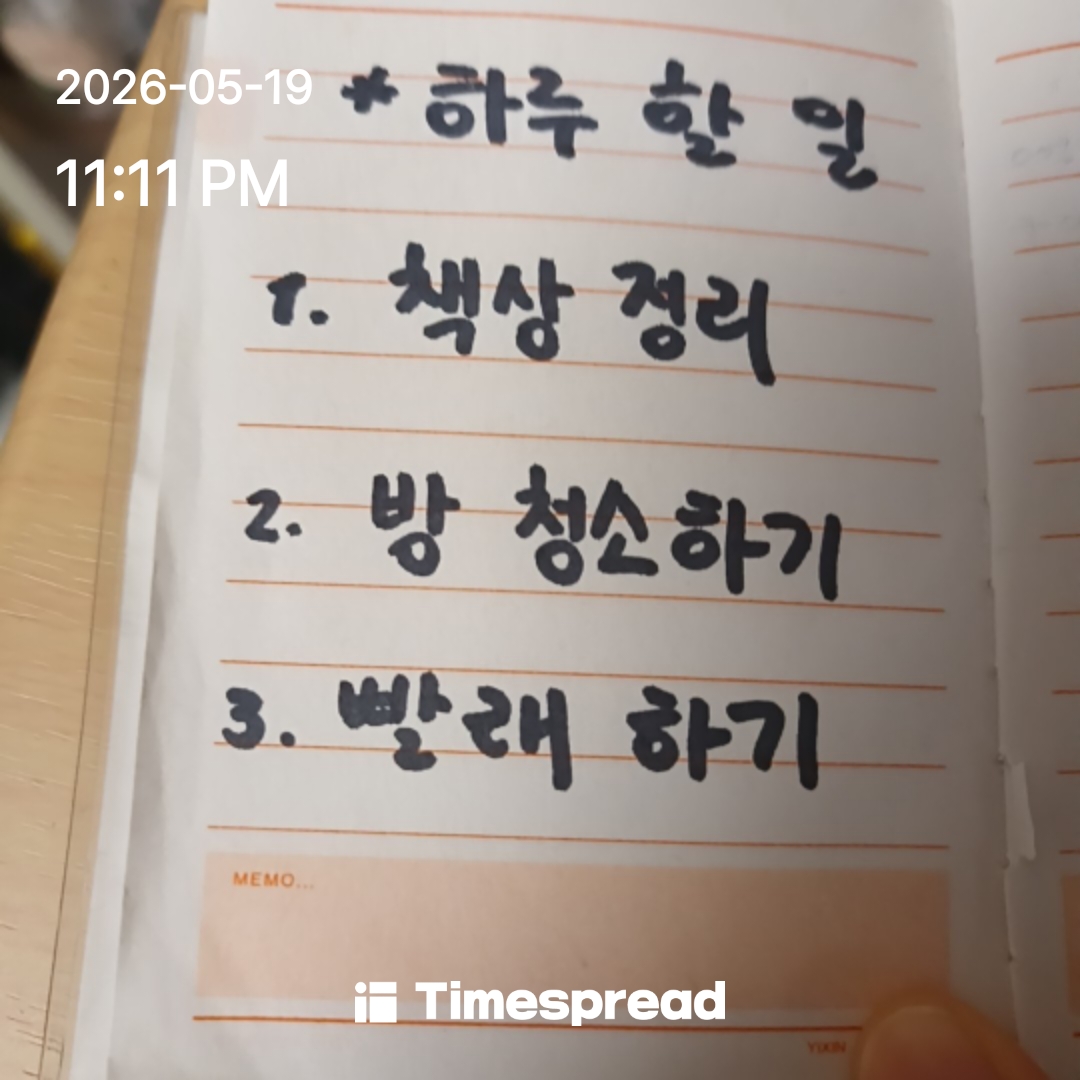 2026-05-19
11:11 PM
* 하루 할 일
1. 책상 정리
2. 방 청소하기
3. 빨래 하기
MEMO...
Timespread
YIXIN